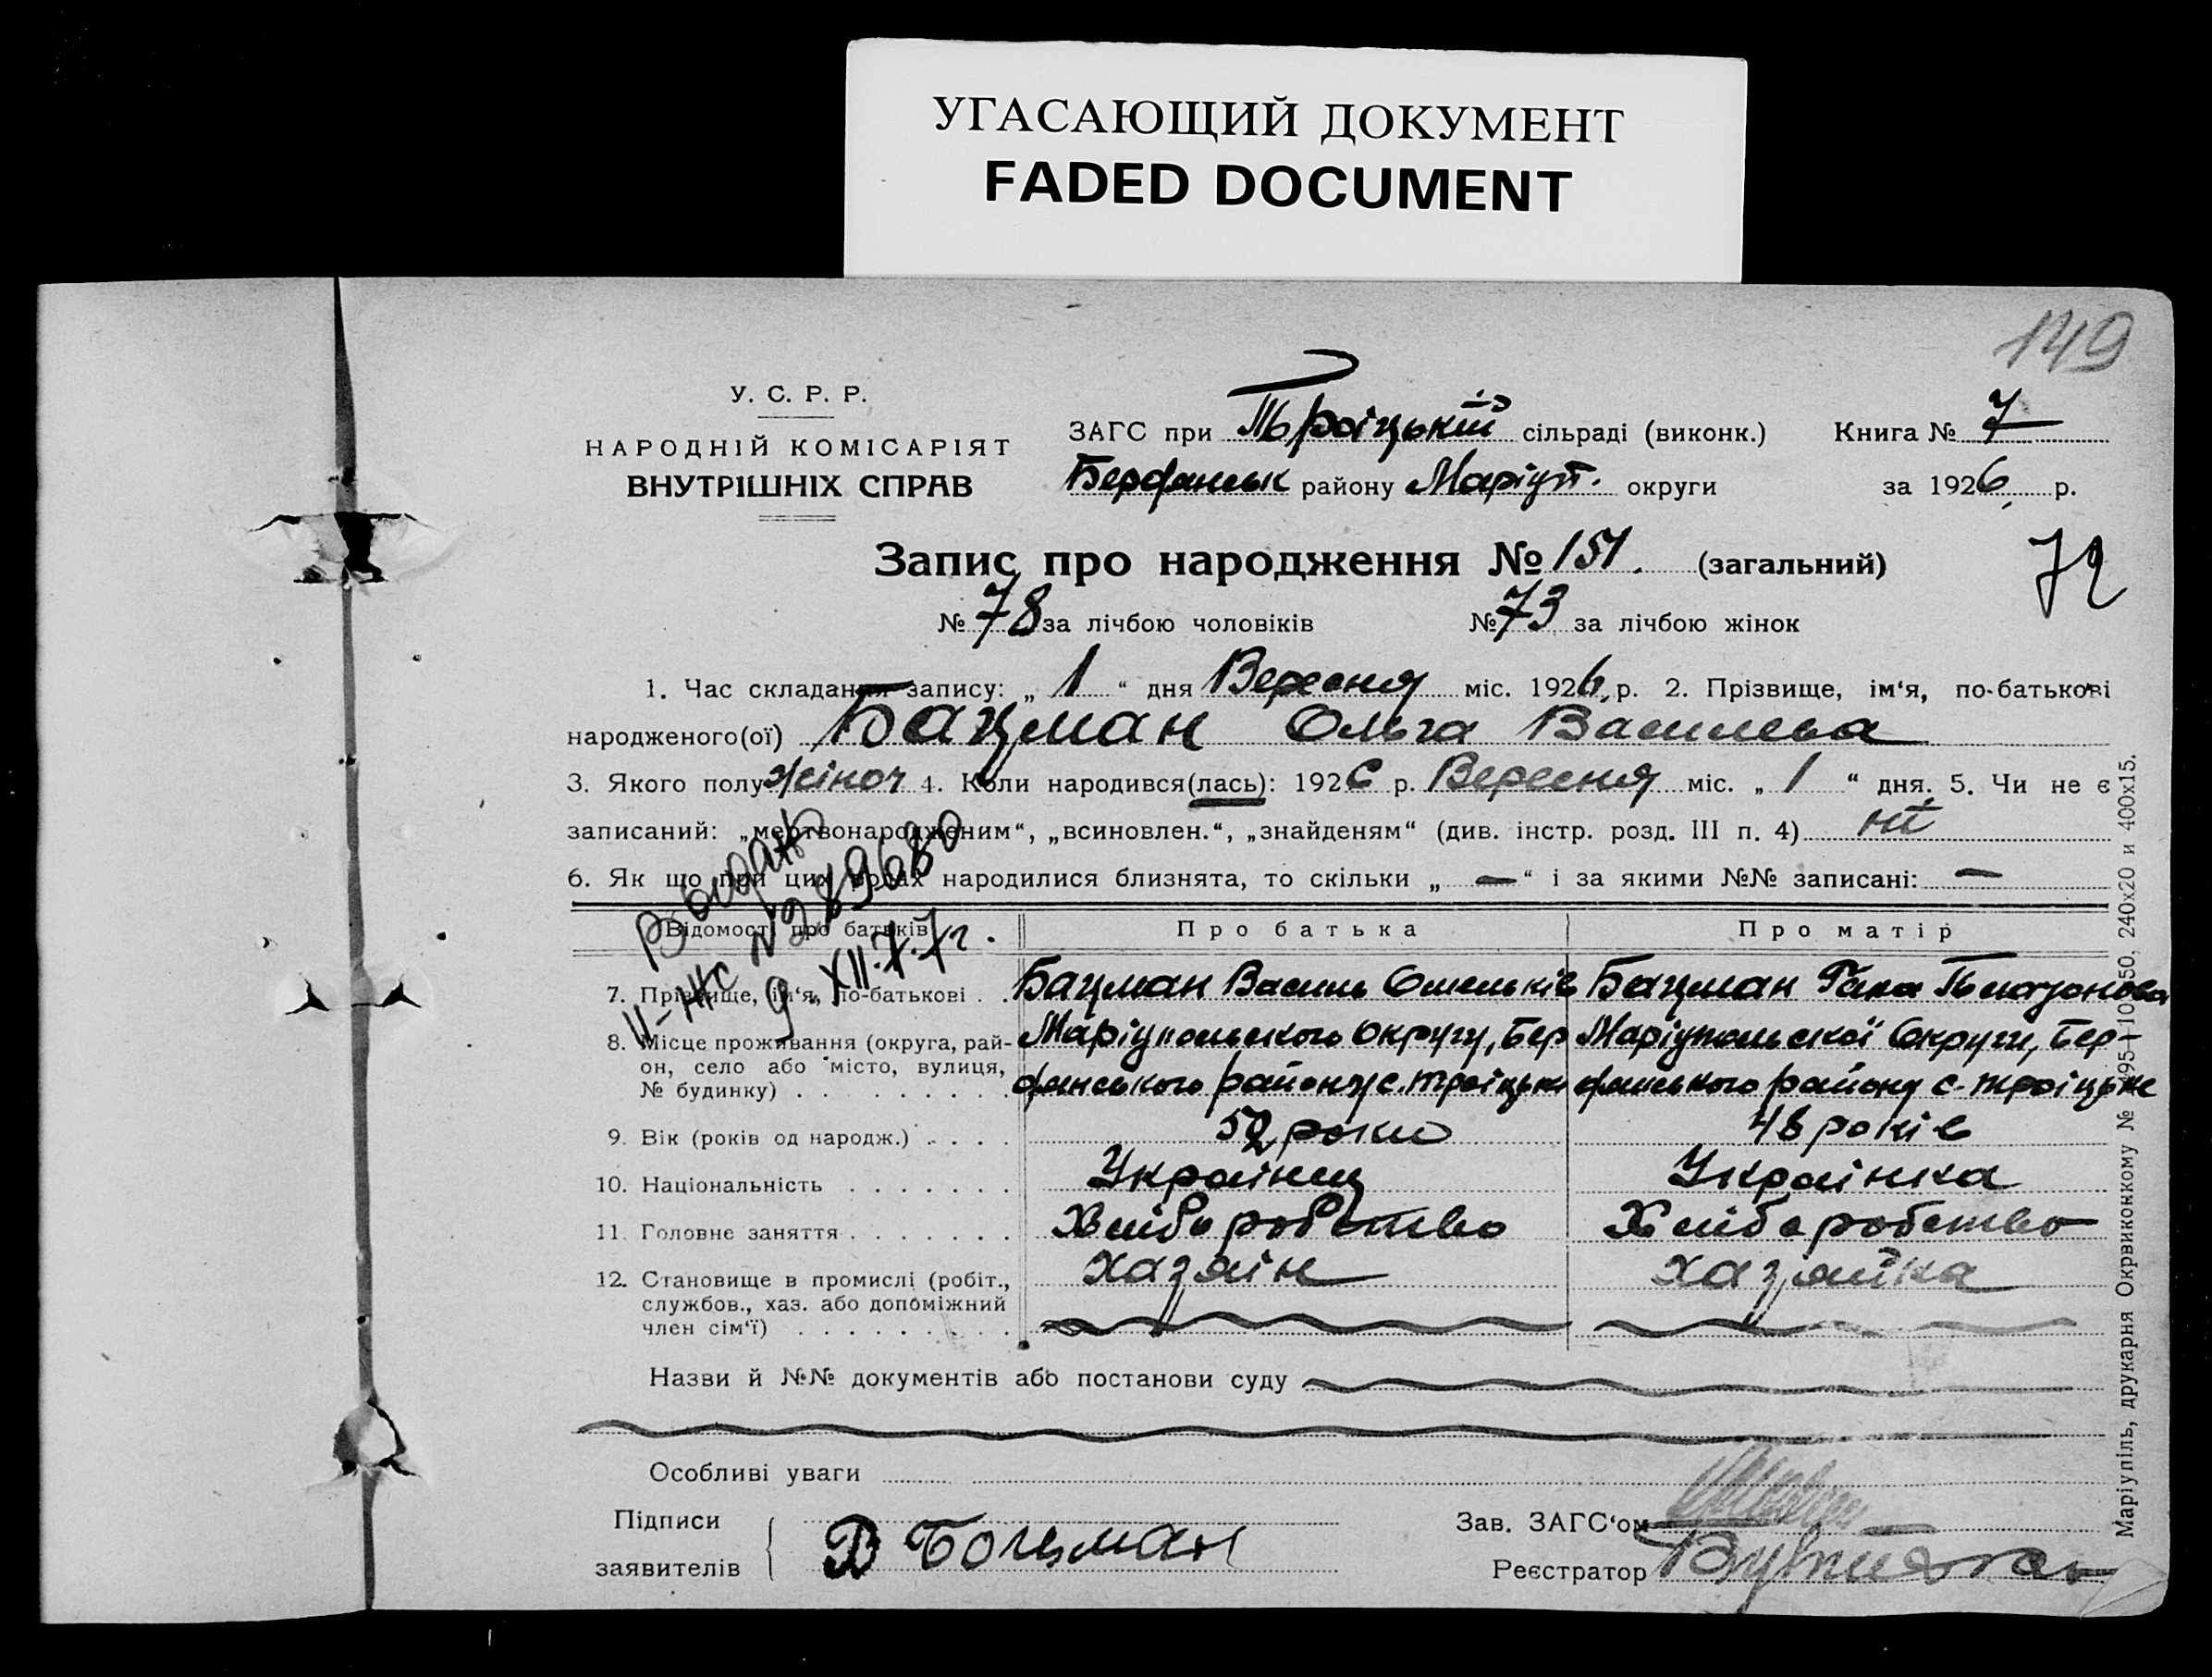 УГАСАЮЩИЙ ДОКУМЕНТ
FADED DOCUMENT
149
У. С. Р. Р.
НАРОДНІЙ КОМІСАРІЯТ
ВНУТРІШНІХ СПРАВ
ЗАГС при Троїцькій сільраді (виконк.) Книга № 7
Бердянськ району Маріуп. округи за 1926 р.
Запис про народження № 151. (загальний)
72
№ 78 за лічбою чоловіків № 73 за лічбою жінок
1. Час складання запису: „ 1 “ дня Вересня міс. 1926 р. 2. Прізвище, ім‘я, по-батькові
народженого(ої) Бацман Ольга Василева
3. Якого полу жіноч 4. Коли народився(лась): 1926 р. Вересня міс. „ 1 “ дня. 5. Чи не є
записаний: „мертвонародженим“, „всиновлен.“, „знайденям“ (див. інстр. розд. III п. 4) ні
6. Як що при цих родах народилися близнята, то скільки „ — “ і за якими №№ записані: —
II-ЖС №289680
9.XII.77г.
Відомості про батьків Про батька Про матір
7. Прізвище, ім‘я, по-батькові . . Бацман Василь Омельків Бацман Гана
8. Місце проживання (округа, рай-
он, село або місто, вулиця,
№ будинку) . . . . . . . . .
Маріупольского Округу, Бер
дянського району с. троїцьке
Маріупольскої Округи, Бер-
дянського району с. троїцьке
9. Вік (років од народж.) . . . . 52 роки 48 років
10. Національність . . . . . . . Українец Українка
11. Головне заняття . . . . . . . Хліборобство Хліборобство
12. Становище в промислі (робіт.,
службов., хаз. або допоміжний
член сім‘ї) . . . . . . . . .
Хазяїн Хазяйка
Назви й №№ документів або постанови суду
Особливі уваги
Підписи
заявителів
Д Боцман
Зав. ЗАГС‘ом
Реєстратор
Маріупіль, друкарня Окрвиконкому № 495—10050, 240х20 и 400х15.